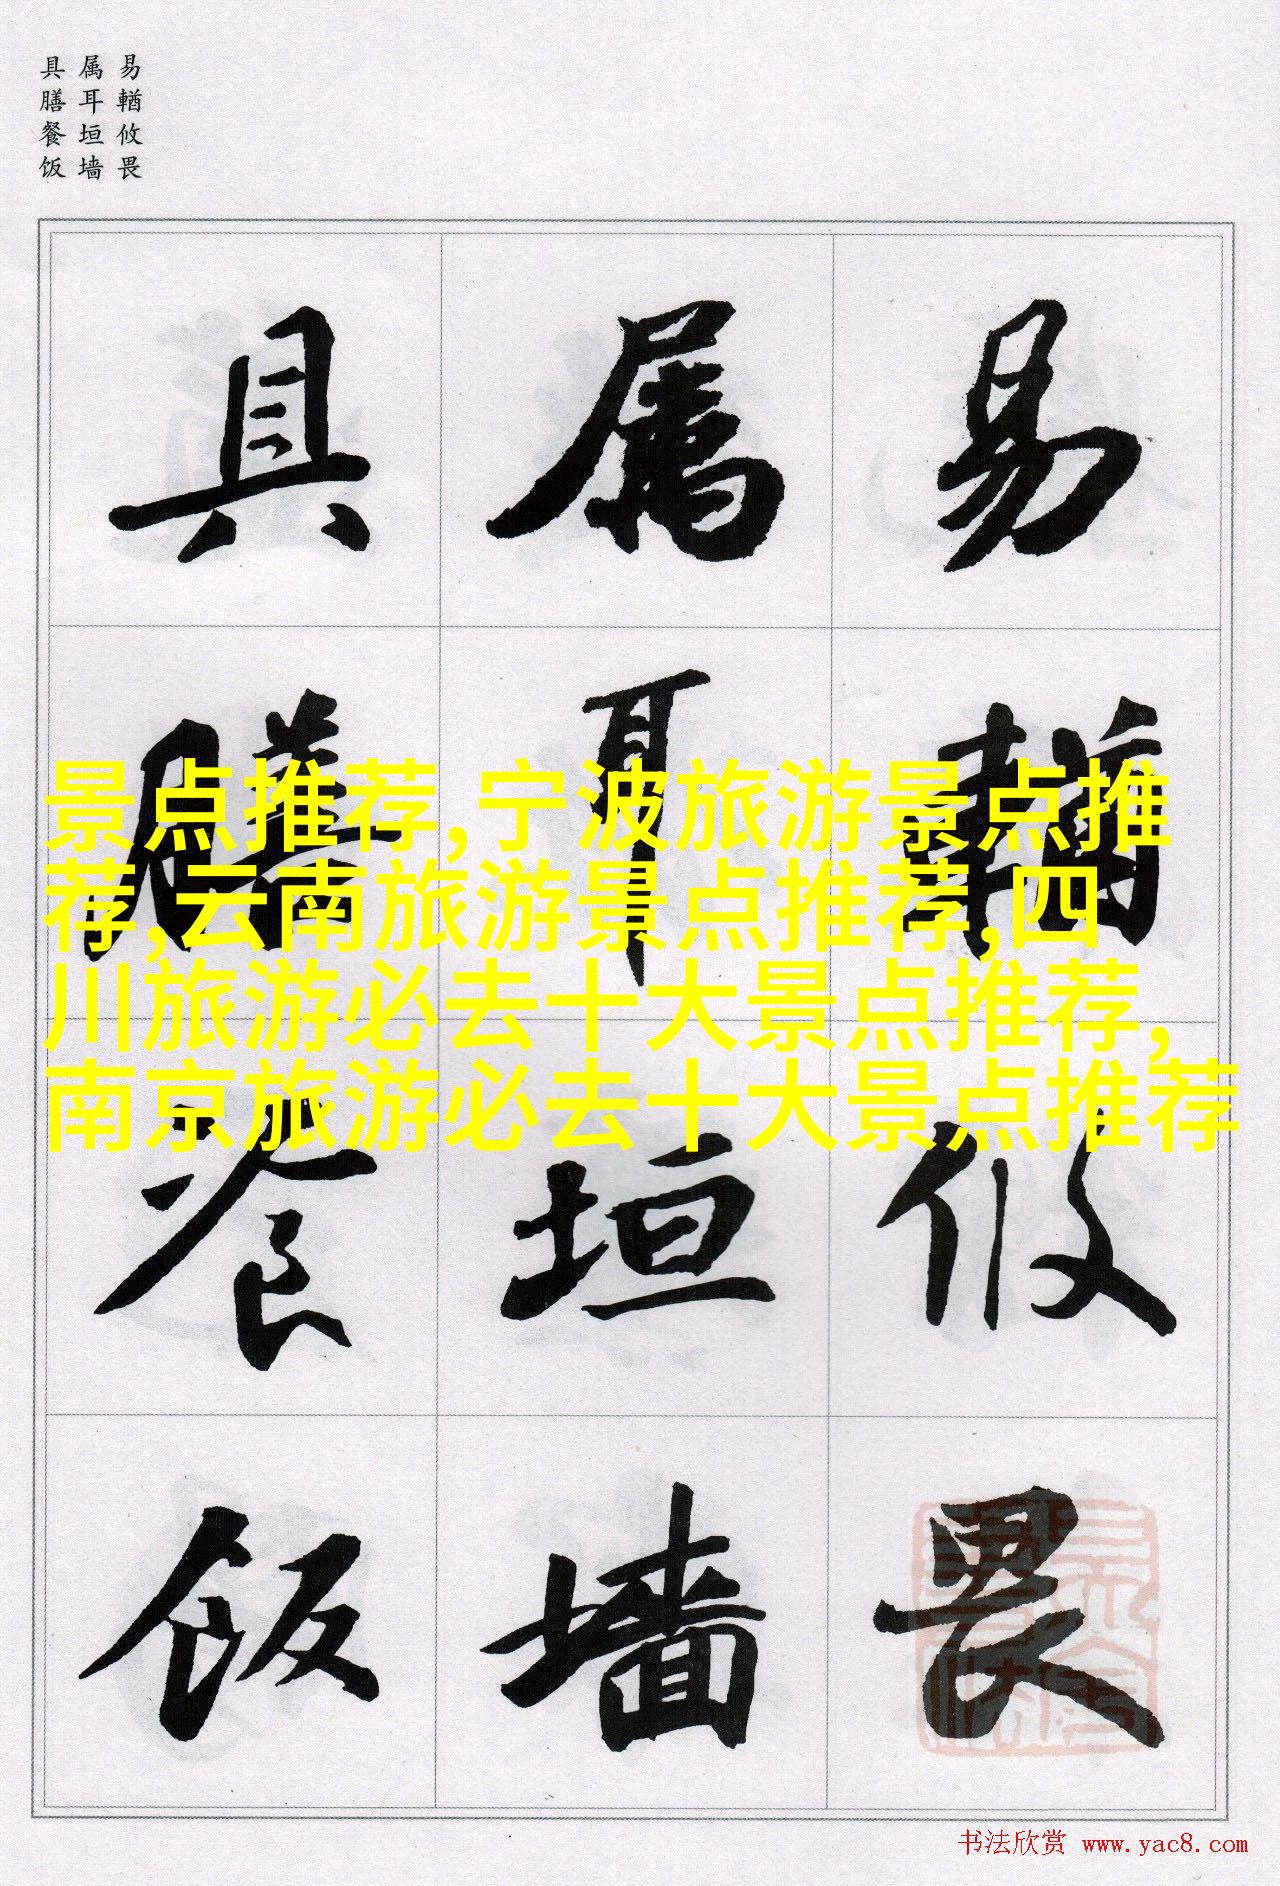 易輶攸畏
属耳垣墙
具膳餐饭
易輶攸畏
属耳垣墙
具膳餐饭
景点推荐,宁波旅游景点推
荐,云南旅游景点推荐,四
川旅游必去十大景点推荐,
南京旅游必去十大景点推荐
书法欣赏 www.yac8.com